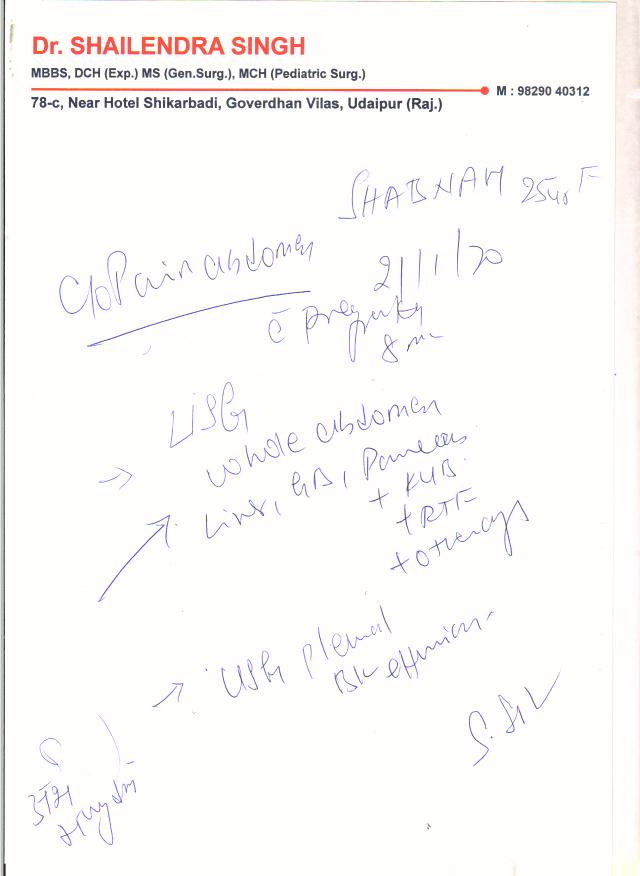 Dr. SHAILENDRA SINGH
MBBS, DCH (Exp.) MS (Gen.Surg.), MCH (Pediatric Surg.)
M : 98290 40312
78-c, Near Hotel Shikarbadi, Goverdhan Vilas, Udaipur (Raj.)
SHABNAM 25yr F
C/o Pain abdomen
21/1/20
c̄ pregnancy
8 m
USG
→ whole abdomen
Liver, GB, Pancreas
+ KUB
+
+ others
→ USG pleural
effusion